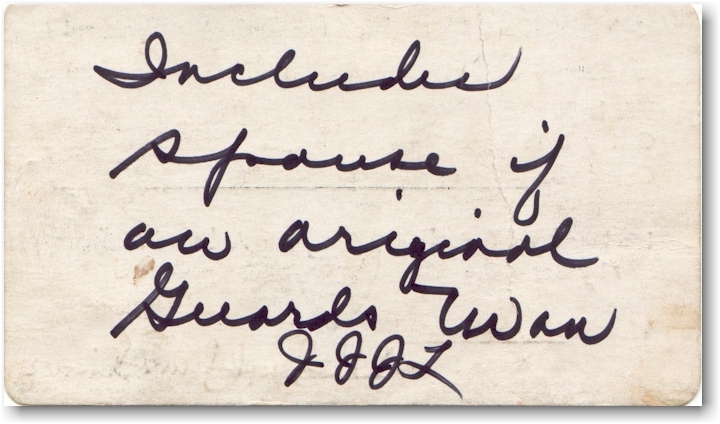 Includes
spouse if
an original
Guards Man
JJJL